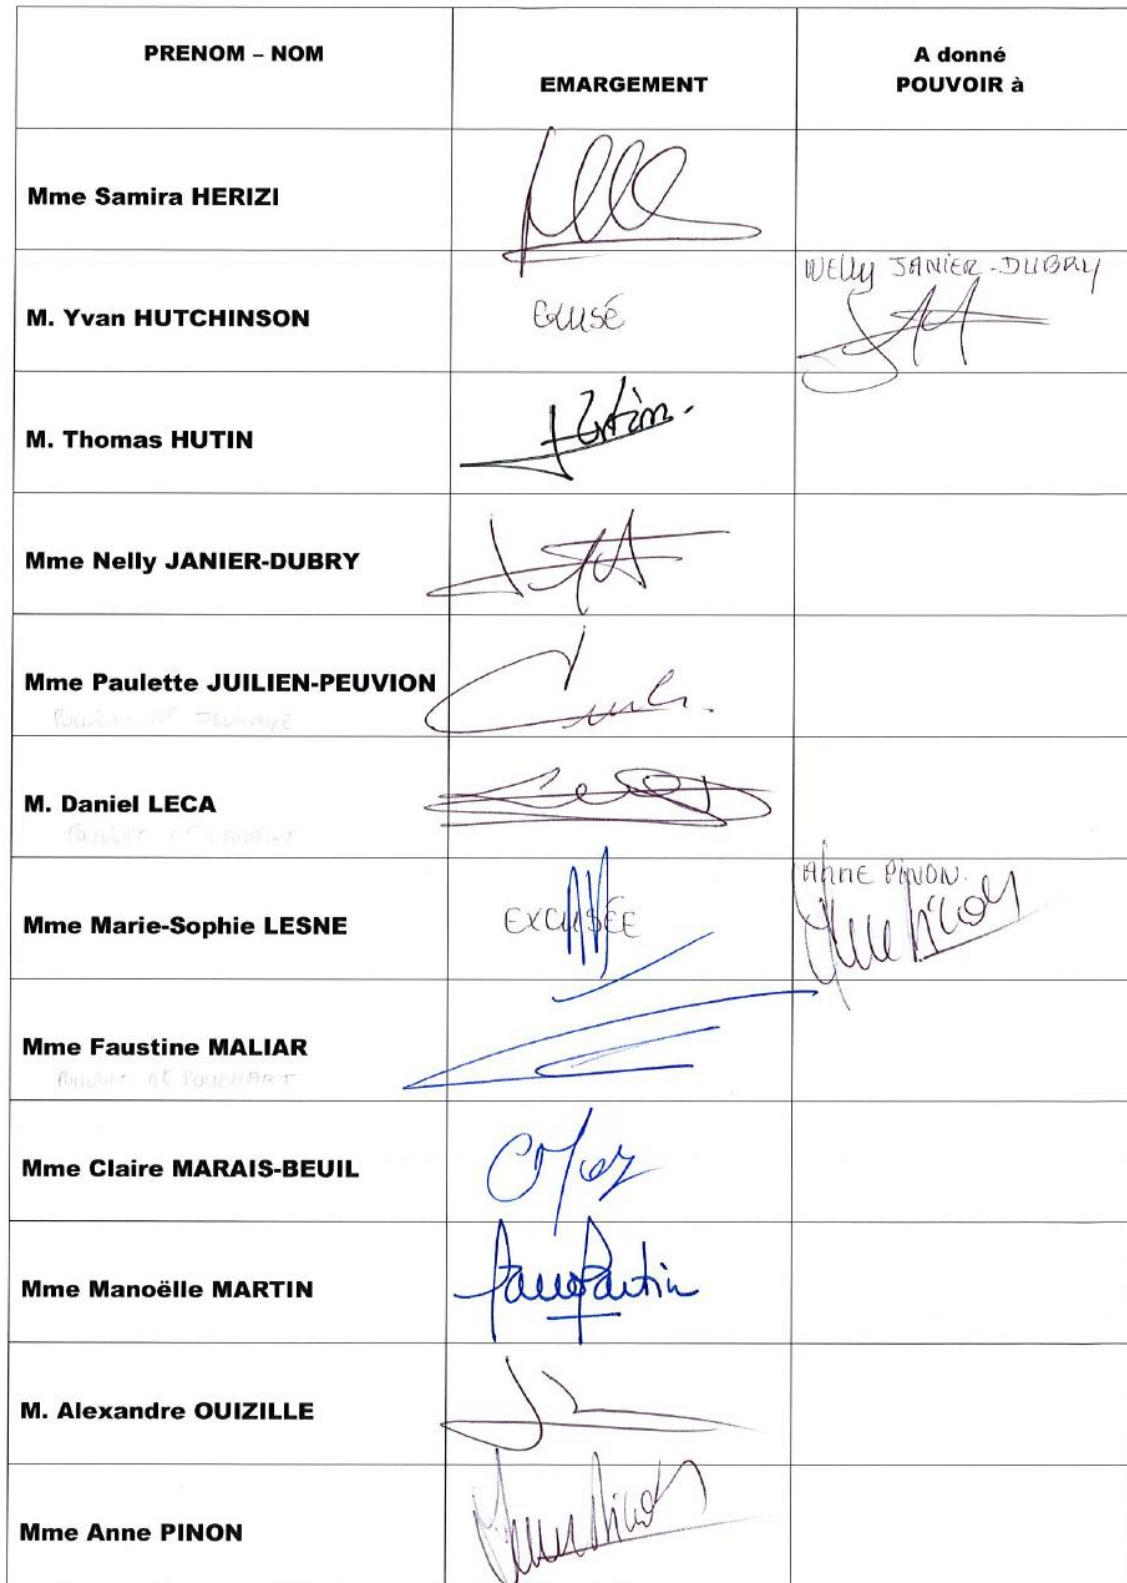 PRENOM – NOM
EMARGEMENT
A donné
POUVOIR à
Mme Samira HERIZI
M. Yvan HUTCHINSON
EXCUSÉ
NELLY JANIER-DUBRY
M. Thomas HUTIN
Mme Nelly JANIER-DUBRY
Mme Paulette JUILIEN-PEUVION
POUVOIR DELHAYE
M. Daniel LECA
POUVOIR
Mme Marie-Sophie LESNE
EXCUSÉE
ANNE PINON.
Mme Faustine MALIAR
POUVOIR POUCHART
Mme Claire MARAIS-BEUIL
Mme Manoëlle MARTIN
M. Alexandre OUIZILLE
Mme Anne PINON